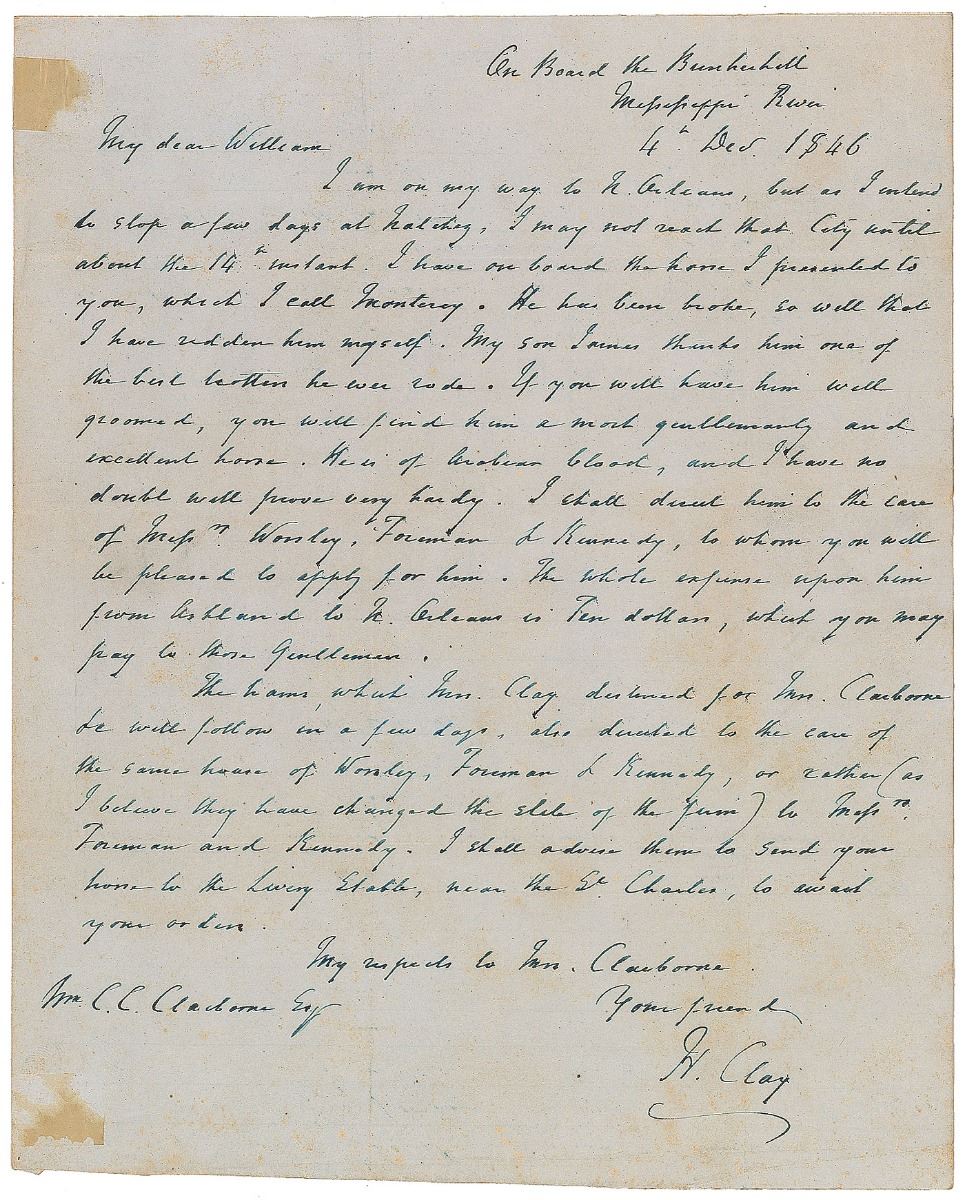 On Board the Bunkerhill
Mississippi River
4th Dec. 1846
My dear William
I am on my way to N. Orleans, but as I intend
to stop a few days at Natchez, I may not reach that City until
about the 14th instant. I have on board the horse I presented to
you, which I call Monterey. He has been broke, so well that
I have ridden him myself. My son James thinks him one of
the best trotters he ever rode. If you will have him well
groomed, you will find him a most gentlemanly and
excellent horse. He is of Arabian blood, and I have no
doubt will prove very hardy. I shall direct him to the care
of Messrs. Worsley, Foreman & Kennedy, to whom you will
be pleased to apply for him. The whole expense upon him
from Ashland to N. Orleans is Ten dollars, which you may
pay to those Gentlemen.
The hams, which Mrs. Clay destined for Mrs. Claiborne
&c will follow in a few days, also directed to the care of
the same house of Worsley, Foreman & Kennedy, or rather (as
I believe they have changed the stile of the firm) to Messrs.
Foreman and Kennedy. I shall advise them to send your
horse to the Livery Stable, near the St. Charles, to await
your orders.
My respects to Mrs. Claiborne.
Your friend
Wm. C. C. Claiborne Esq
H. Clay